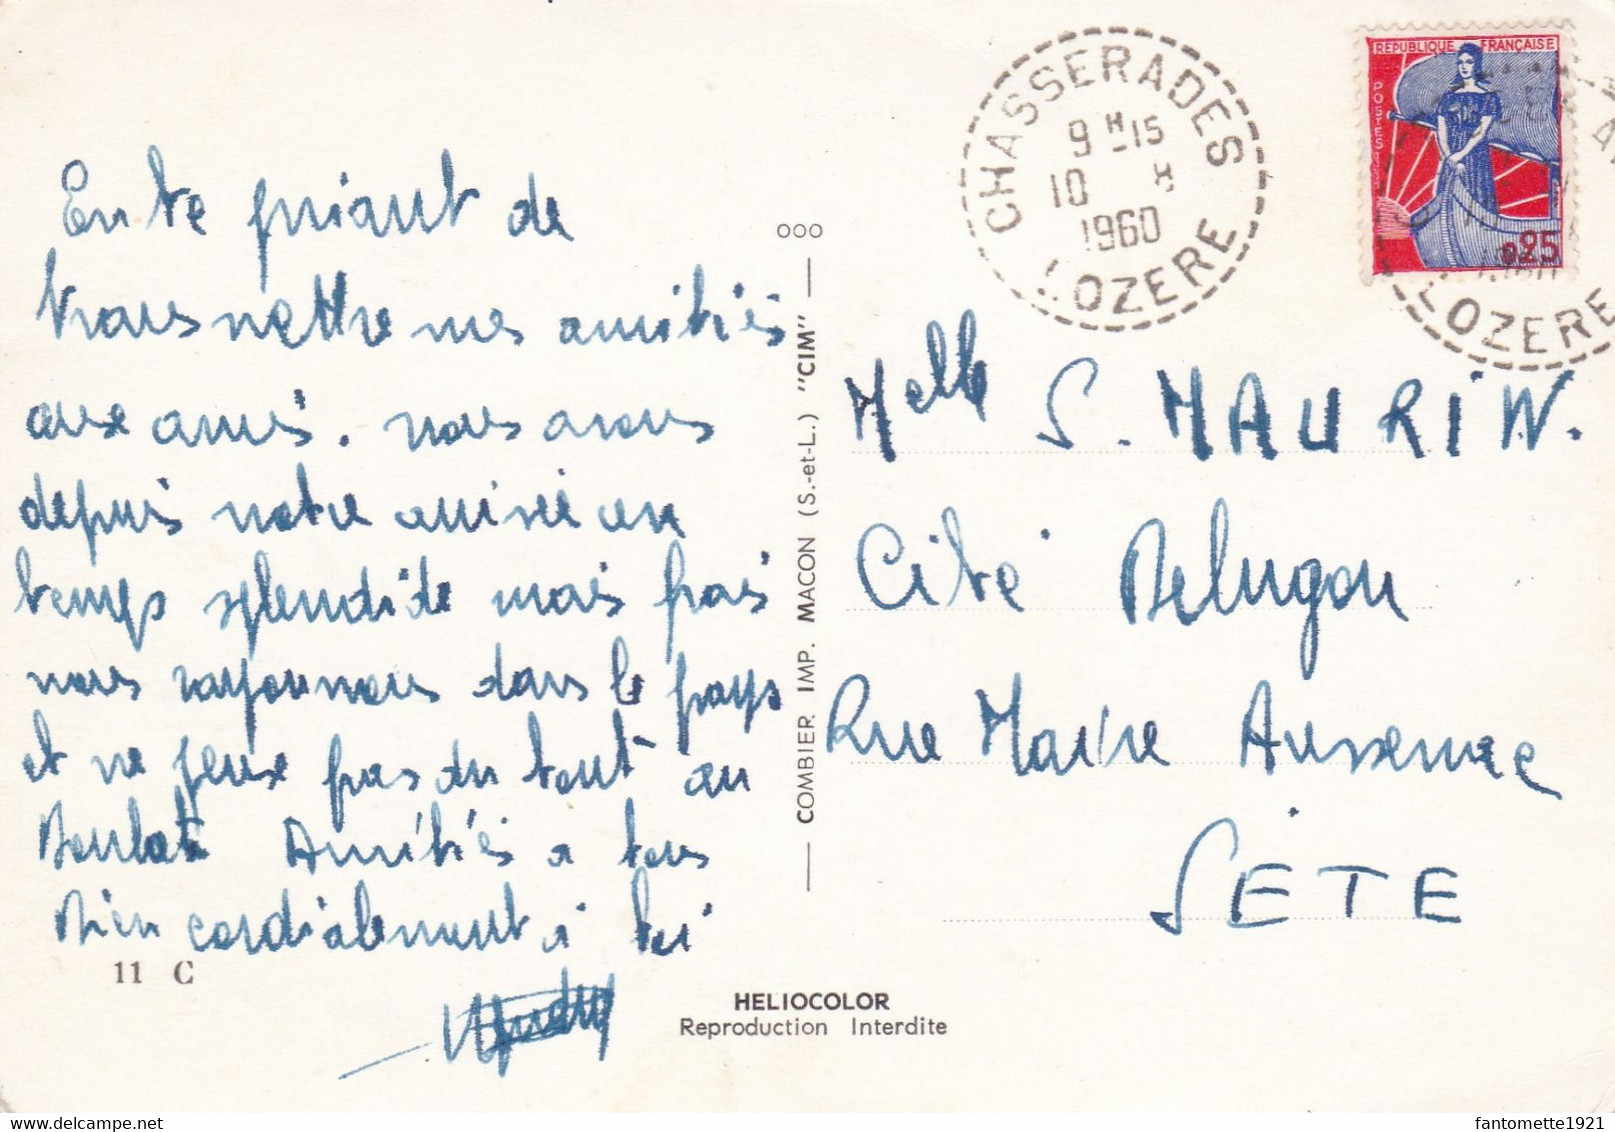 En te priant de
transmettre mes amitiés
aux amis. nous avons
depuis notre arrivée un
temps splendide mais frais
nous rayonnons dans le pays
et ne peux pas du tout au
Boulot Amitiés a tous
Bien cordialement à toi
11 C
ooo
COMBIER IMP. MACON (S.-et-L.) "CIM"
HELIOCOLOR
Reproduction Interdite
CHASSERADES
9 H 15
10 X
1960
LOZERE
REPUBLIQUE FRANÇAISE
POSTES
0,25
LOZERE
Melle S. MAURIN.
Cité Belugou
Rue Maire Aussenac
SÈTE
fantomette1921